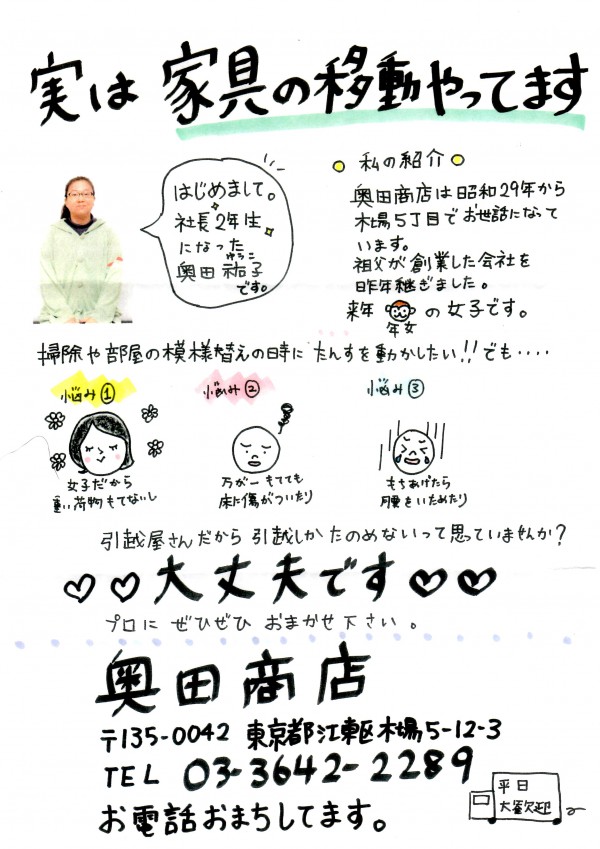 実は 家具の移動やってます
はじめまして。
社長2年生
になった
ゆうこ
奥田 祐子
です。
私の紹介
奥田商店は昭和29年から
木場5丁目でお世話になって
います。
祖父が創業した会社を
昨年継ぎました。
来年 の女子です。
年女
掃除や部屋の模様替えの時に たんすを動かしたい!! でも・・・・
悩み①
悩み②
悩み③
女子だから
重い荷物もてないし
万が一もてても
床に傷がついたり
もちあげたら
腰をいためたり
引越屋さんだから 引越しかたのめないって思っていませんか?
♡♡大丈夫です♡♡
プロに ぜひぜひ おまかせ下さい。
奥田商店
〒135-0042 東京都江東区木場5-12-3
TEL 03-3642-2289
お電話おまちしてます。
平日
大歓迎